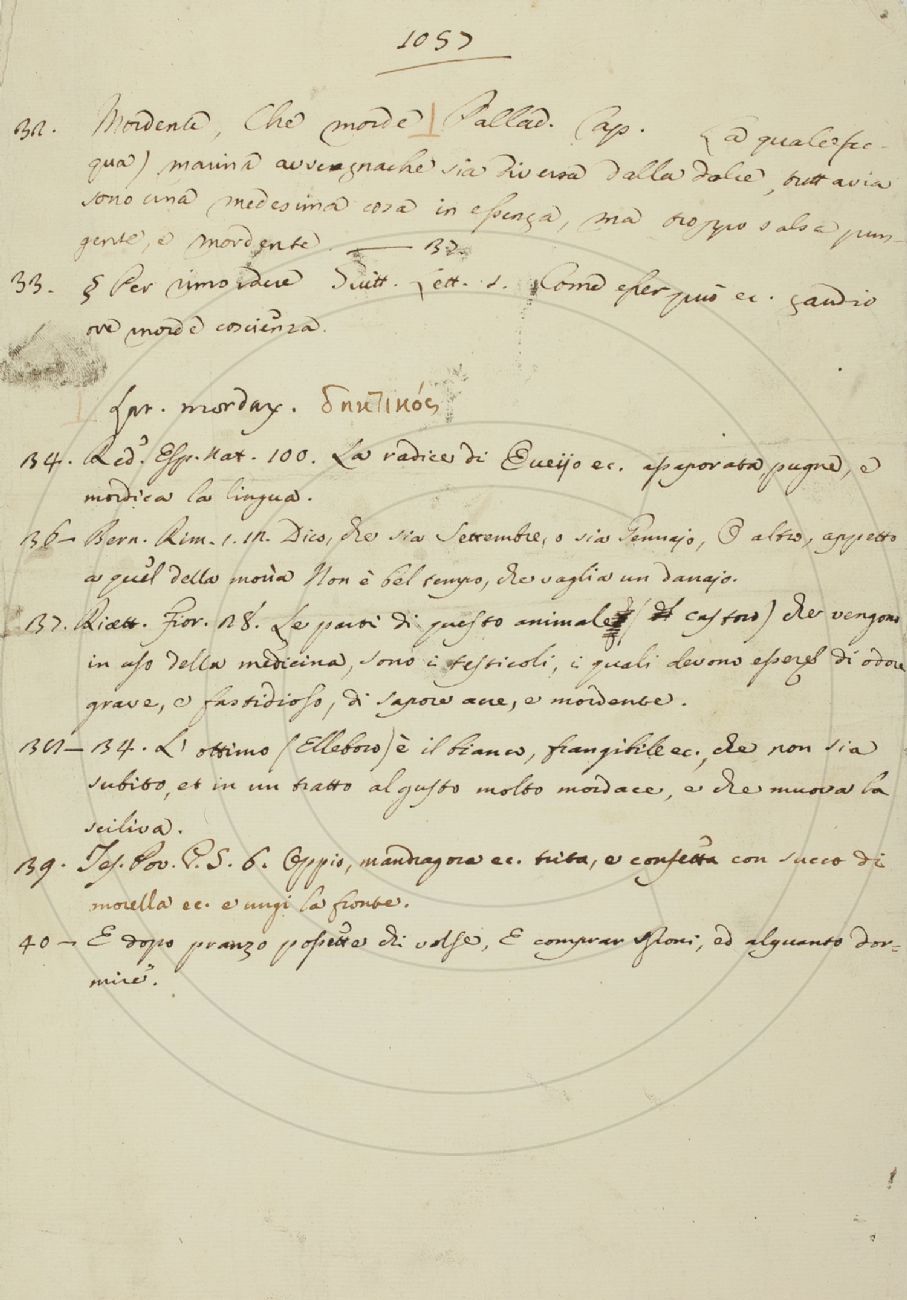 1057
32. Mordente, Che morde ⊥ Pallad. Cap. La quale (ac-
qua) marina avvegnachè sia diversa dalla dolce, tuttavia
sono una medesima cosa in essenza, ma troppo salsa pun-
gente, e mordente. — 32.
33. § Per rimordere Guitt. Lett. 1. Come esser può ec. gaudio
ove morde coscienza.
⊥ Lat. mordax. δηκτικός
34. Red. Esp. Nat. 100. La radice di ec. assaporata, pugne, e
mordica la lingua.
36 — Bern. Rim. 1. 12. Dico, che sia Settembre, o sia Gennajo, O altro, appetto
a quel della moria Non è bel tempo, che vaglia un danajo.
37. Ricett. Fior. 28. Le parti di questo animale (castoro) che vengono
in uso della medicina, sono i testicoli, i quali devono essere di odore
grave, e fastidioso, di sapore acre, e mordente.
38 — 34. L' ottimo (Elleboro) è il bianco, frangibile ec., che non sia
subito, et in un tratto al gusto molto mordace, e che muova la
sciliva.
39. Tes. Pov. P. S. 6. Oppio, mandragora ec. trita, e confetta con succo di
morella ec. e ungi la fronte.
40 — E dopo pranzo possette di volse, E comprar sproni, ed alquanto dor-
mire.